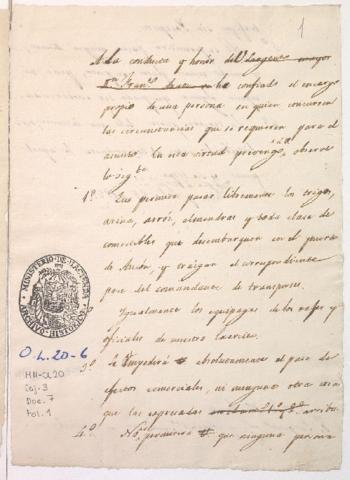 1
A la conducta y honor de V. Sargento mayor
Dn. Fran.co ha confiado el encargo
propio de una persona en quien concurren
las circunstancias que se requieren para el
asunto. En esa virtud prevengo a Ud. observe
lo sig.te
1º Que permita pasar libremente los trigos,
arina, arróz, almendras y toda clase de
comestibles que desembarquen en el puerto
de Ancón, y traigan el correspondiente
pase del comandante de transportes.
Igualmente los equipages de los xefes y
oficiales de nuestro Exercito.
3º Impedirá absolutamente el pase de
efectos comerciales, ni ninguna otra cosa
que las expresadas arriba
4º No permitirá que ninguna persona
MINISTERIO DE HACIENDA
O.L. 20-6
MH-OL20
Caj. 3
Doc. 7
Fol. 1